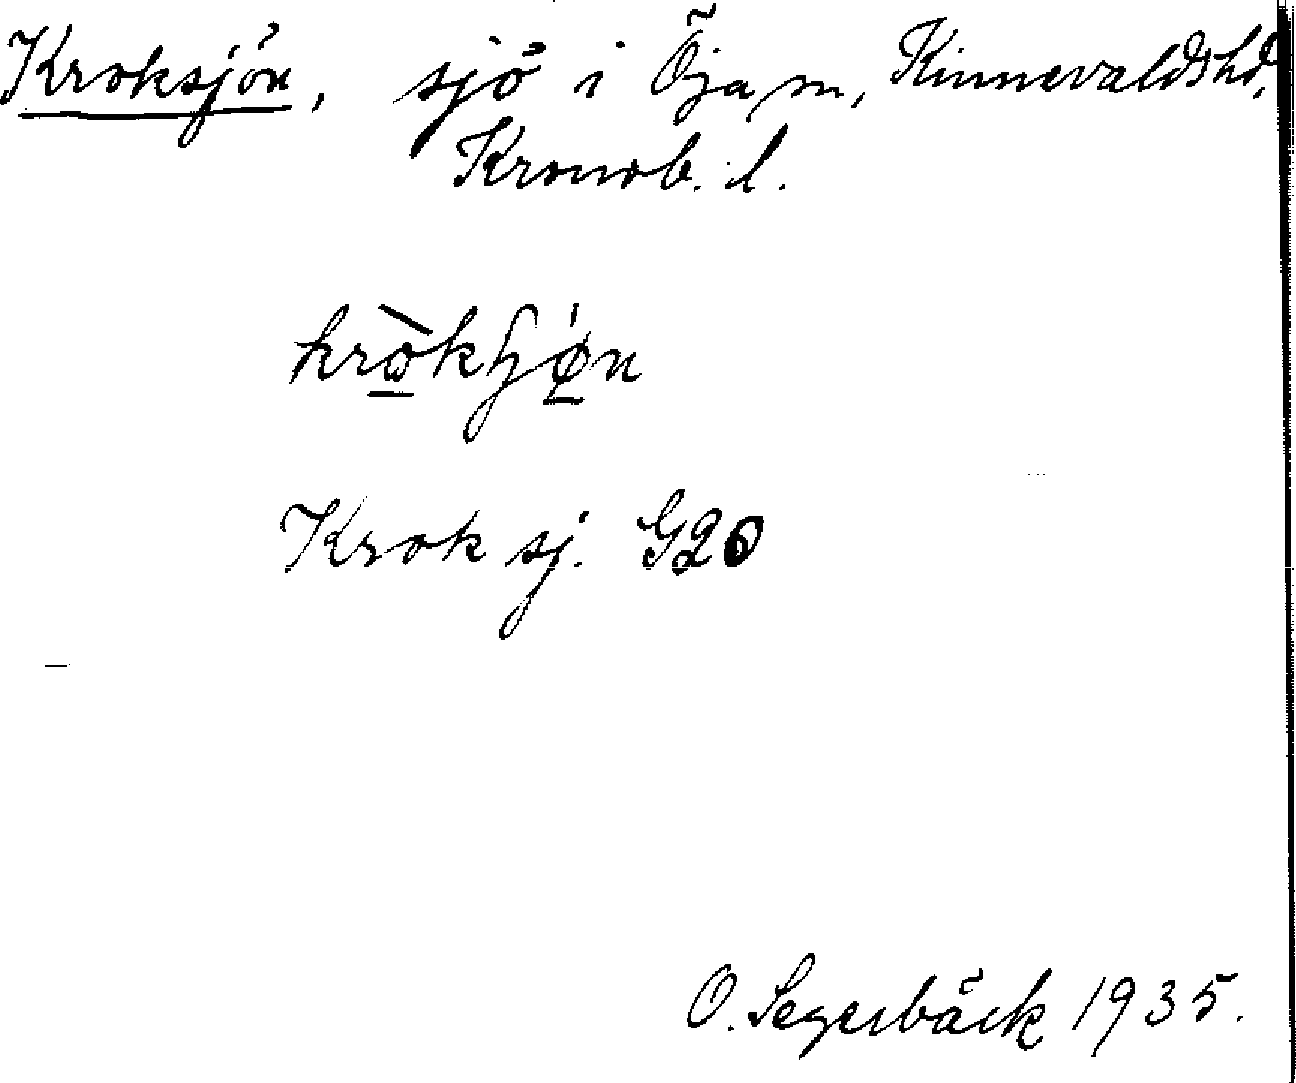 Kroksjön, sjö i Öja sn, Kinnevalds hd,
Kronob. l.
Krok sj. G20
O. Segerbäck 1935.